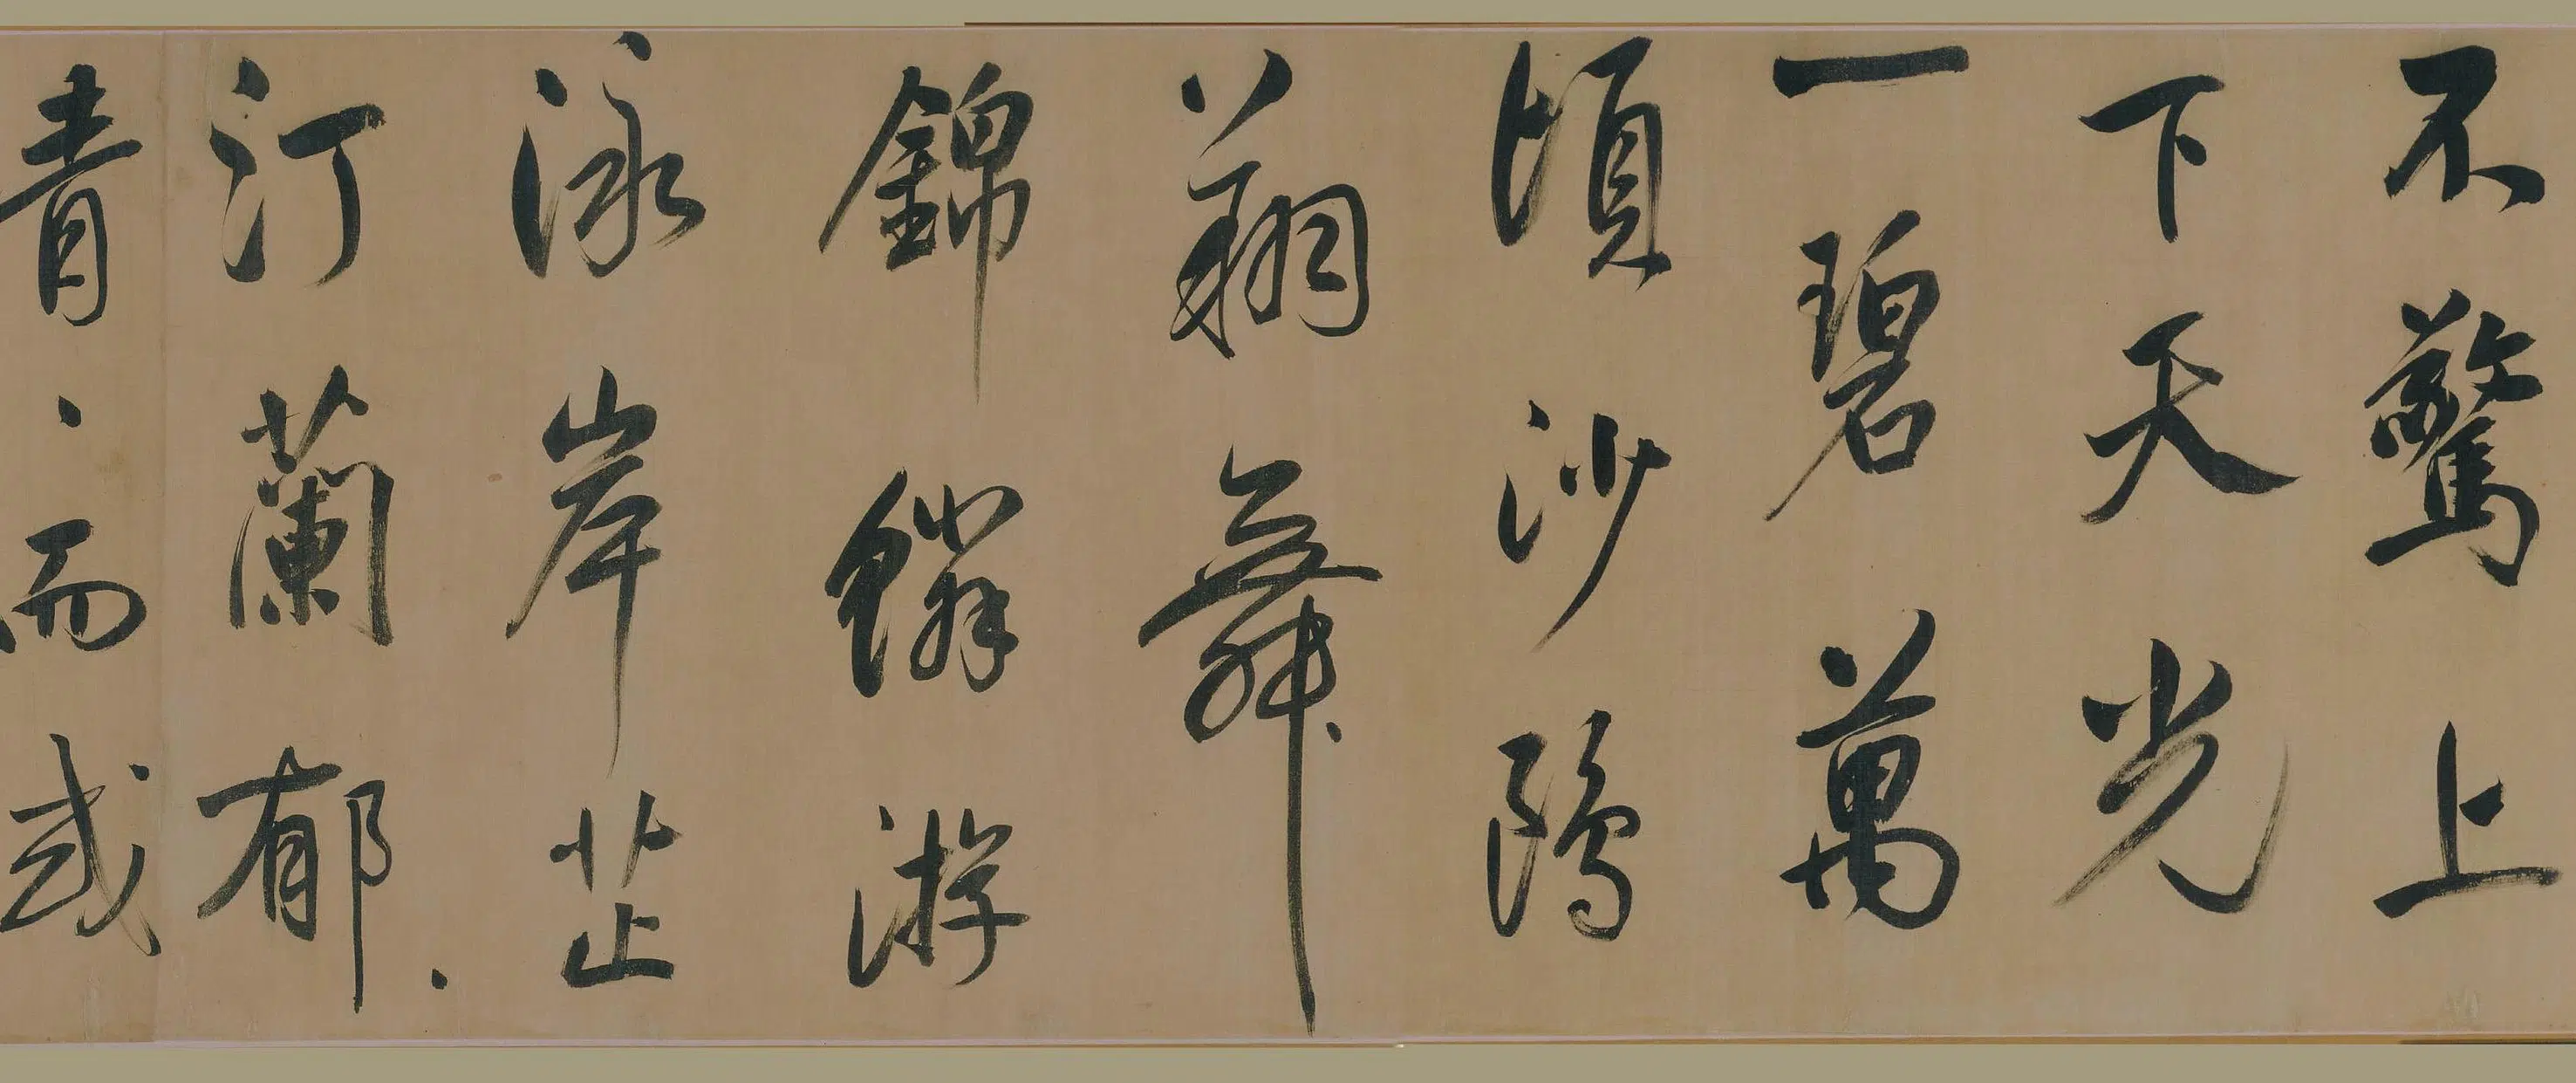 不驚上
下天光
一碧萬
頃沙鷗
翔舞
錦鱗游
泳岸芷
汀蘭郁
青、而或